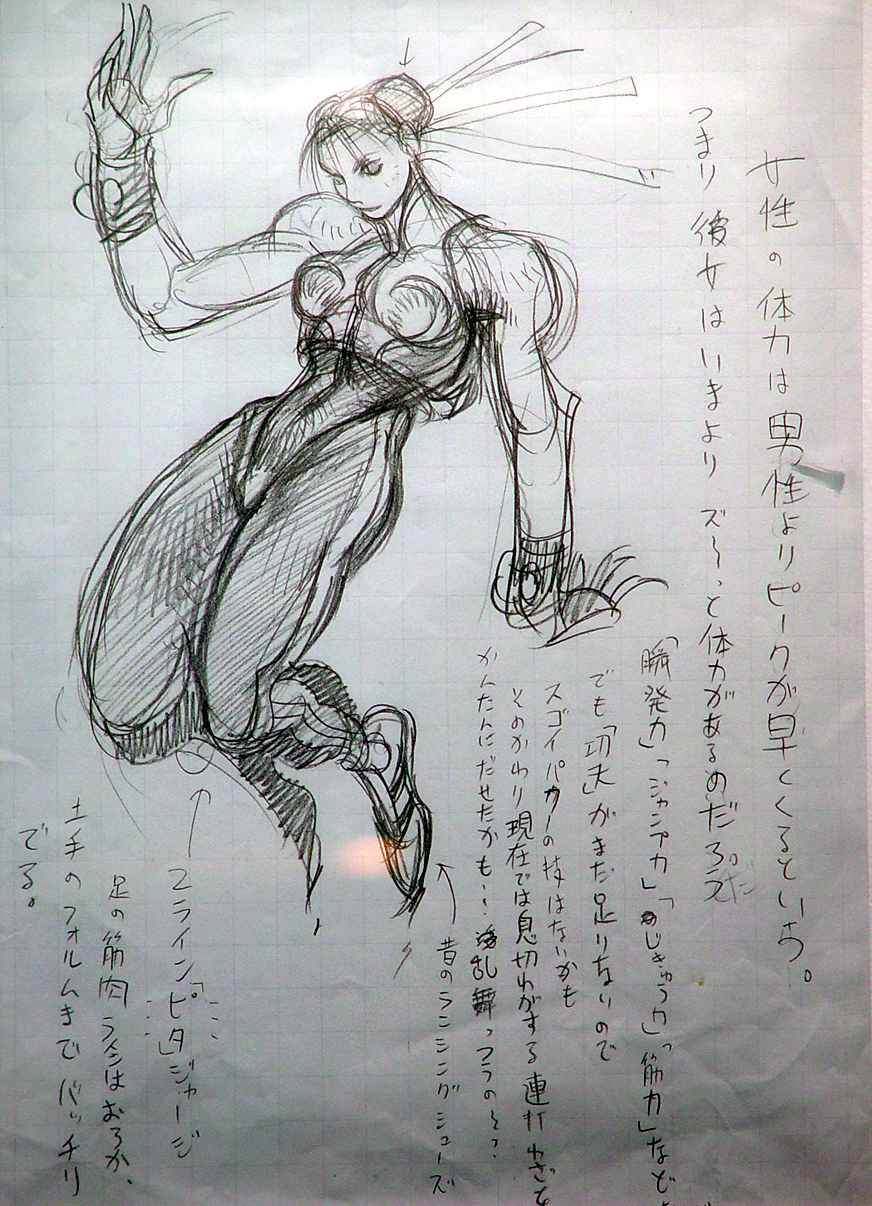 女性の体力は男性よりピークが早くくるという。
つまり彼女はいまより ズ〜っと体力があるのだろう
だ
「瞬発力」「ジャンプ力」「じきゅう力」「筋力」など
でも「功夫」がまだ足りないので
スゴイパワーの技はないかも
そのかわり現在では息切れがする連打わざを
かんたんにだせたかも… 乱舞っつうの？
昔のランニングシューズ
2ライン「ピタ」ジャージ
足の筋肉ラインはおろか、
土手のフォルムまでバッチリ
でる。